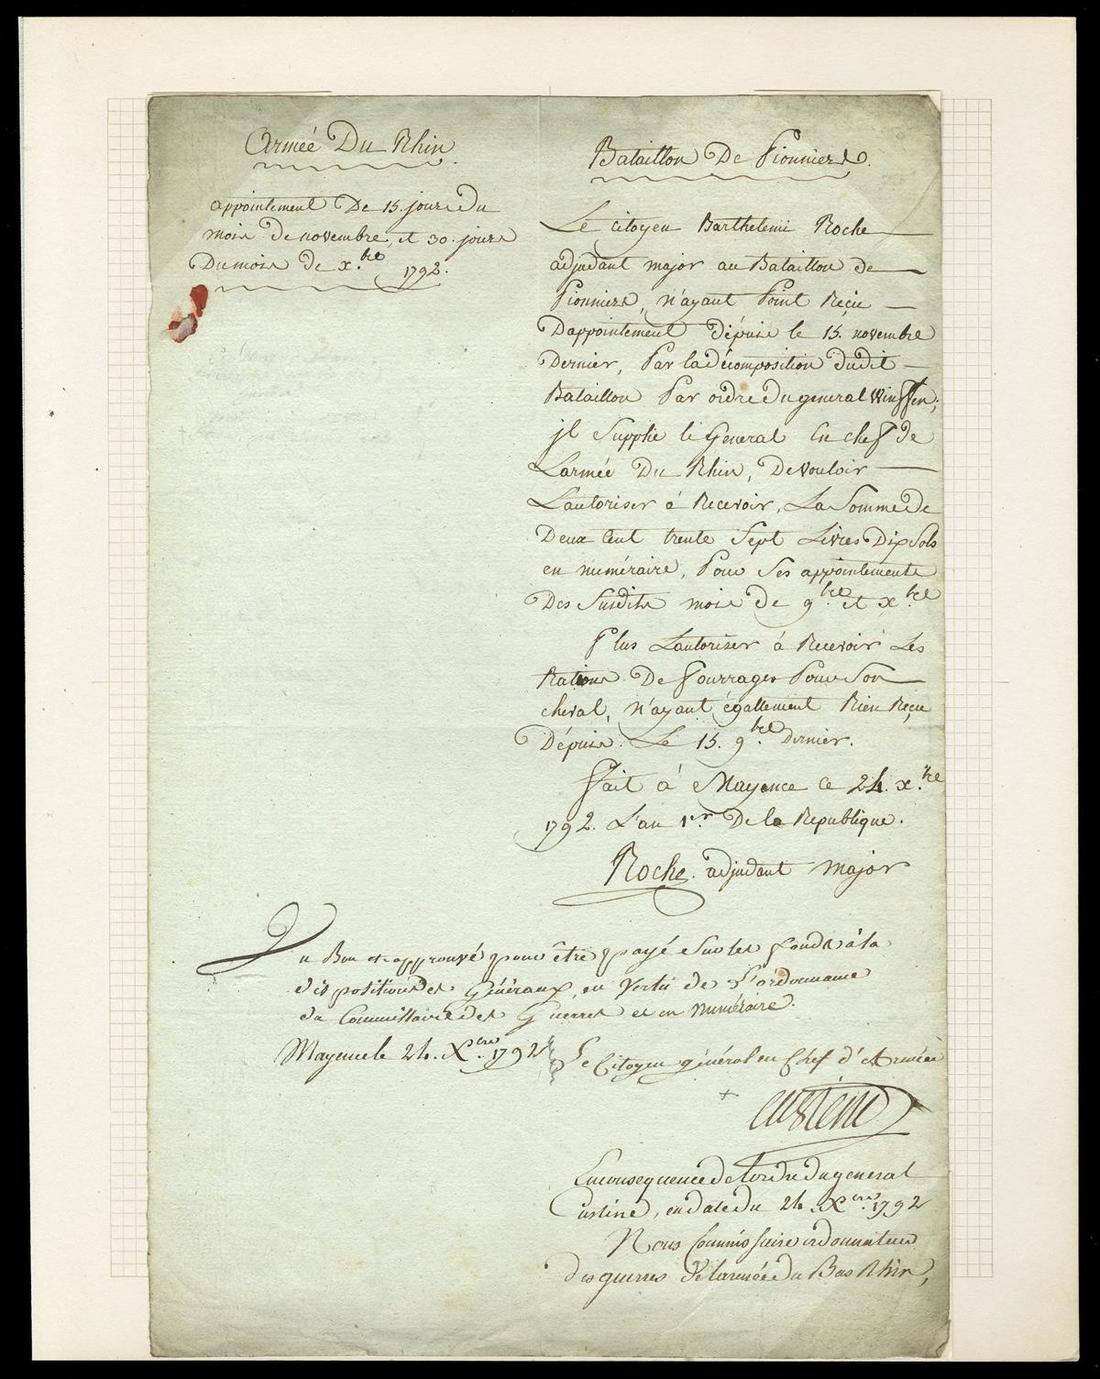 Armée Du Rhin
appointement De 15. jours du
mois de novembre, et 30. jours
Du mois de x.bre 1792.
Bataillon De Pionniers.
Le citoyen Barthelemi Roche
adjudant major au Bataillon de
Pionniers, n'ayant Point Reçu
D'appointement dépuis le 15. novembre
Dernier, Par la décomposition dudit
Bataillon Par ordre du general Winffen,
jl Supplie le General En chef de
L'armée Du Rhin, De vouloir
L'autoriser à Recevoir, La Somme de
Deux Cent trente Sept Livres Dix Sols
en numéraire, Pour Ses appointements
Des Susdits mois de 9.bre et x.bre
Plus L'autoriser à Recevoir Les
Rations De fourrages Pour Son
cheval, n'ayant égallement Rien Reçu
Dépuis Le 15. 9.bre Dernier.
Fait à Mayence ce 24. x.bre
1792. L'an 1.er De la Republique.
Roche adjudant major
Vu Bon et approuvé pour être payé sur les fonds à la
disposition des Généraux, en vertu de L'ordonnance
du Commissaire des Guerres et en Numéraire.
Mayence le 24. Xbre 1792
Le Citoyen général en Chef d'Armée
Custine
En consequence de l'ordre du general
Custine, en date du 24 Xbre 1792
Nous Commissaire ordonnateur
des guerres de l'armée du Bas Rhin,